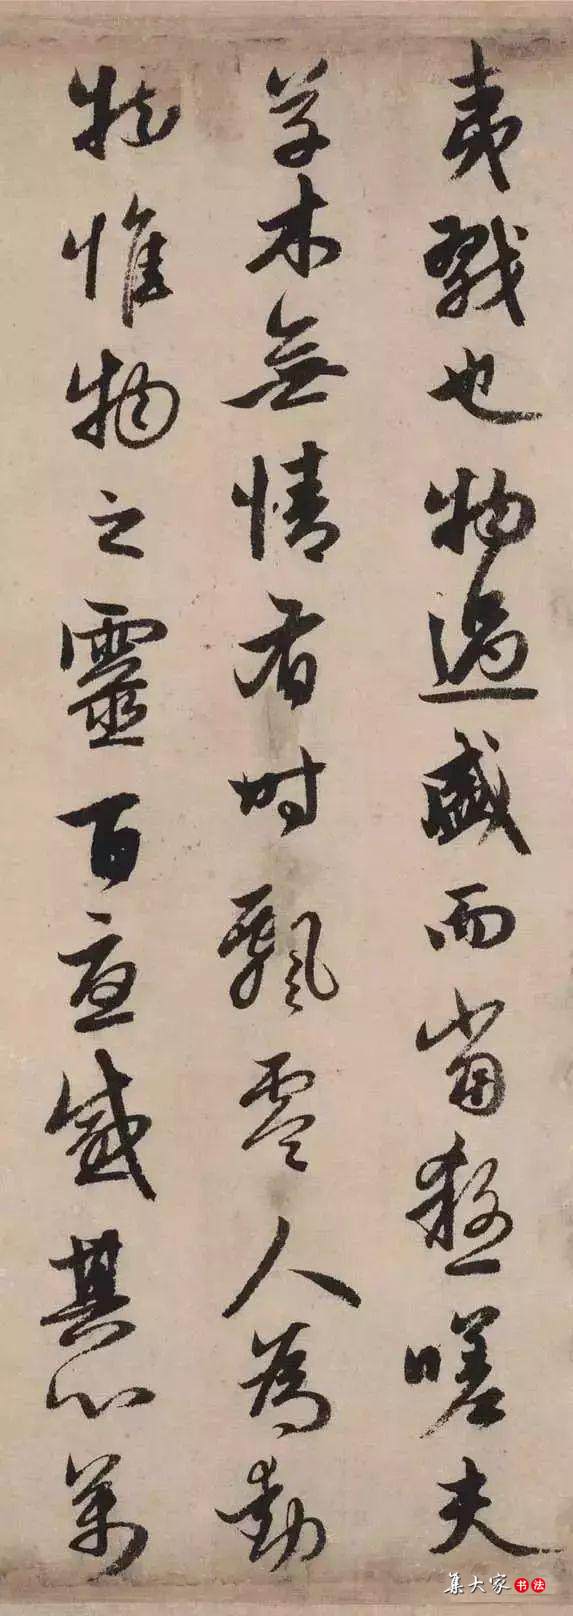 夷戮也物過盛而當殺嗟夫
草木無情有时飄零人為動
物惟物之靈百憂感其心萬
集大家书法